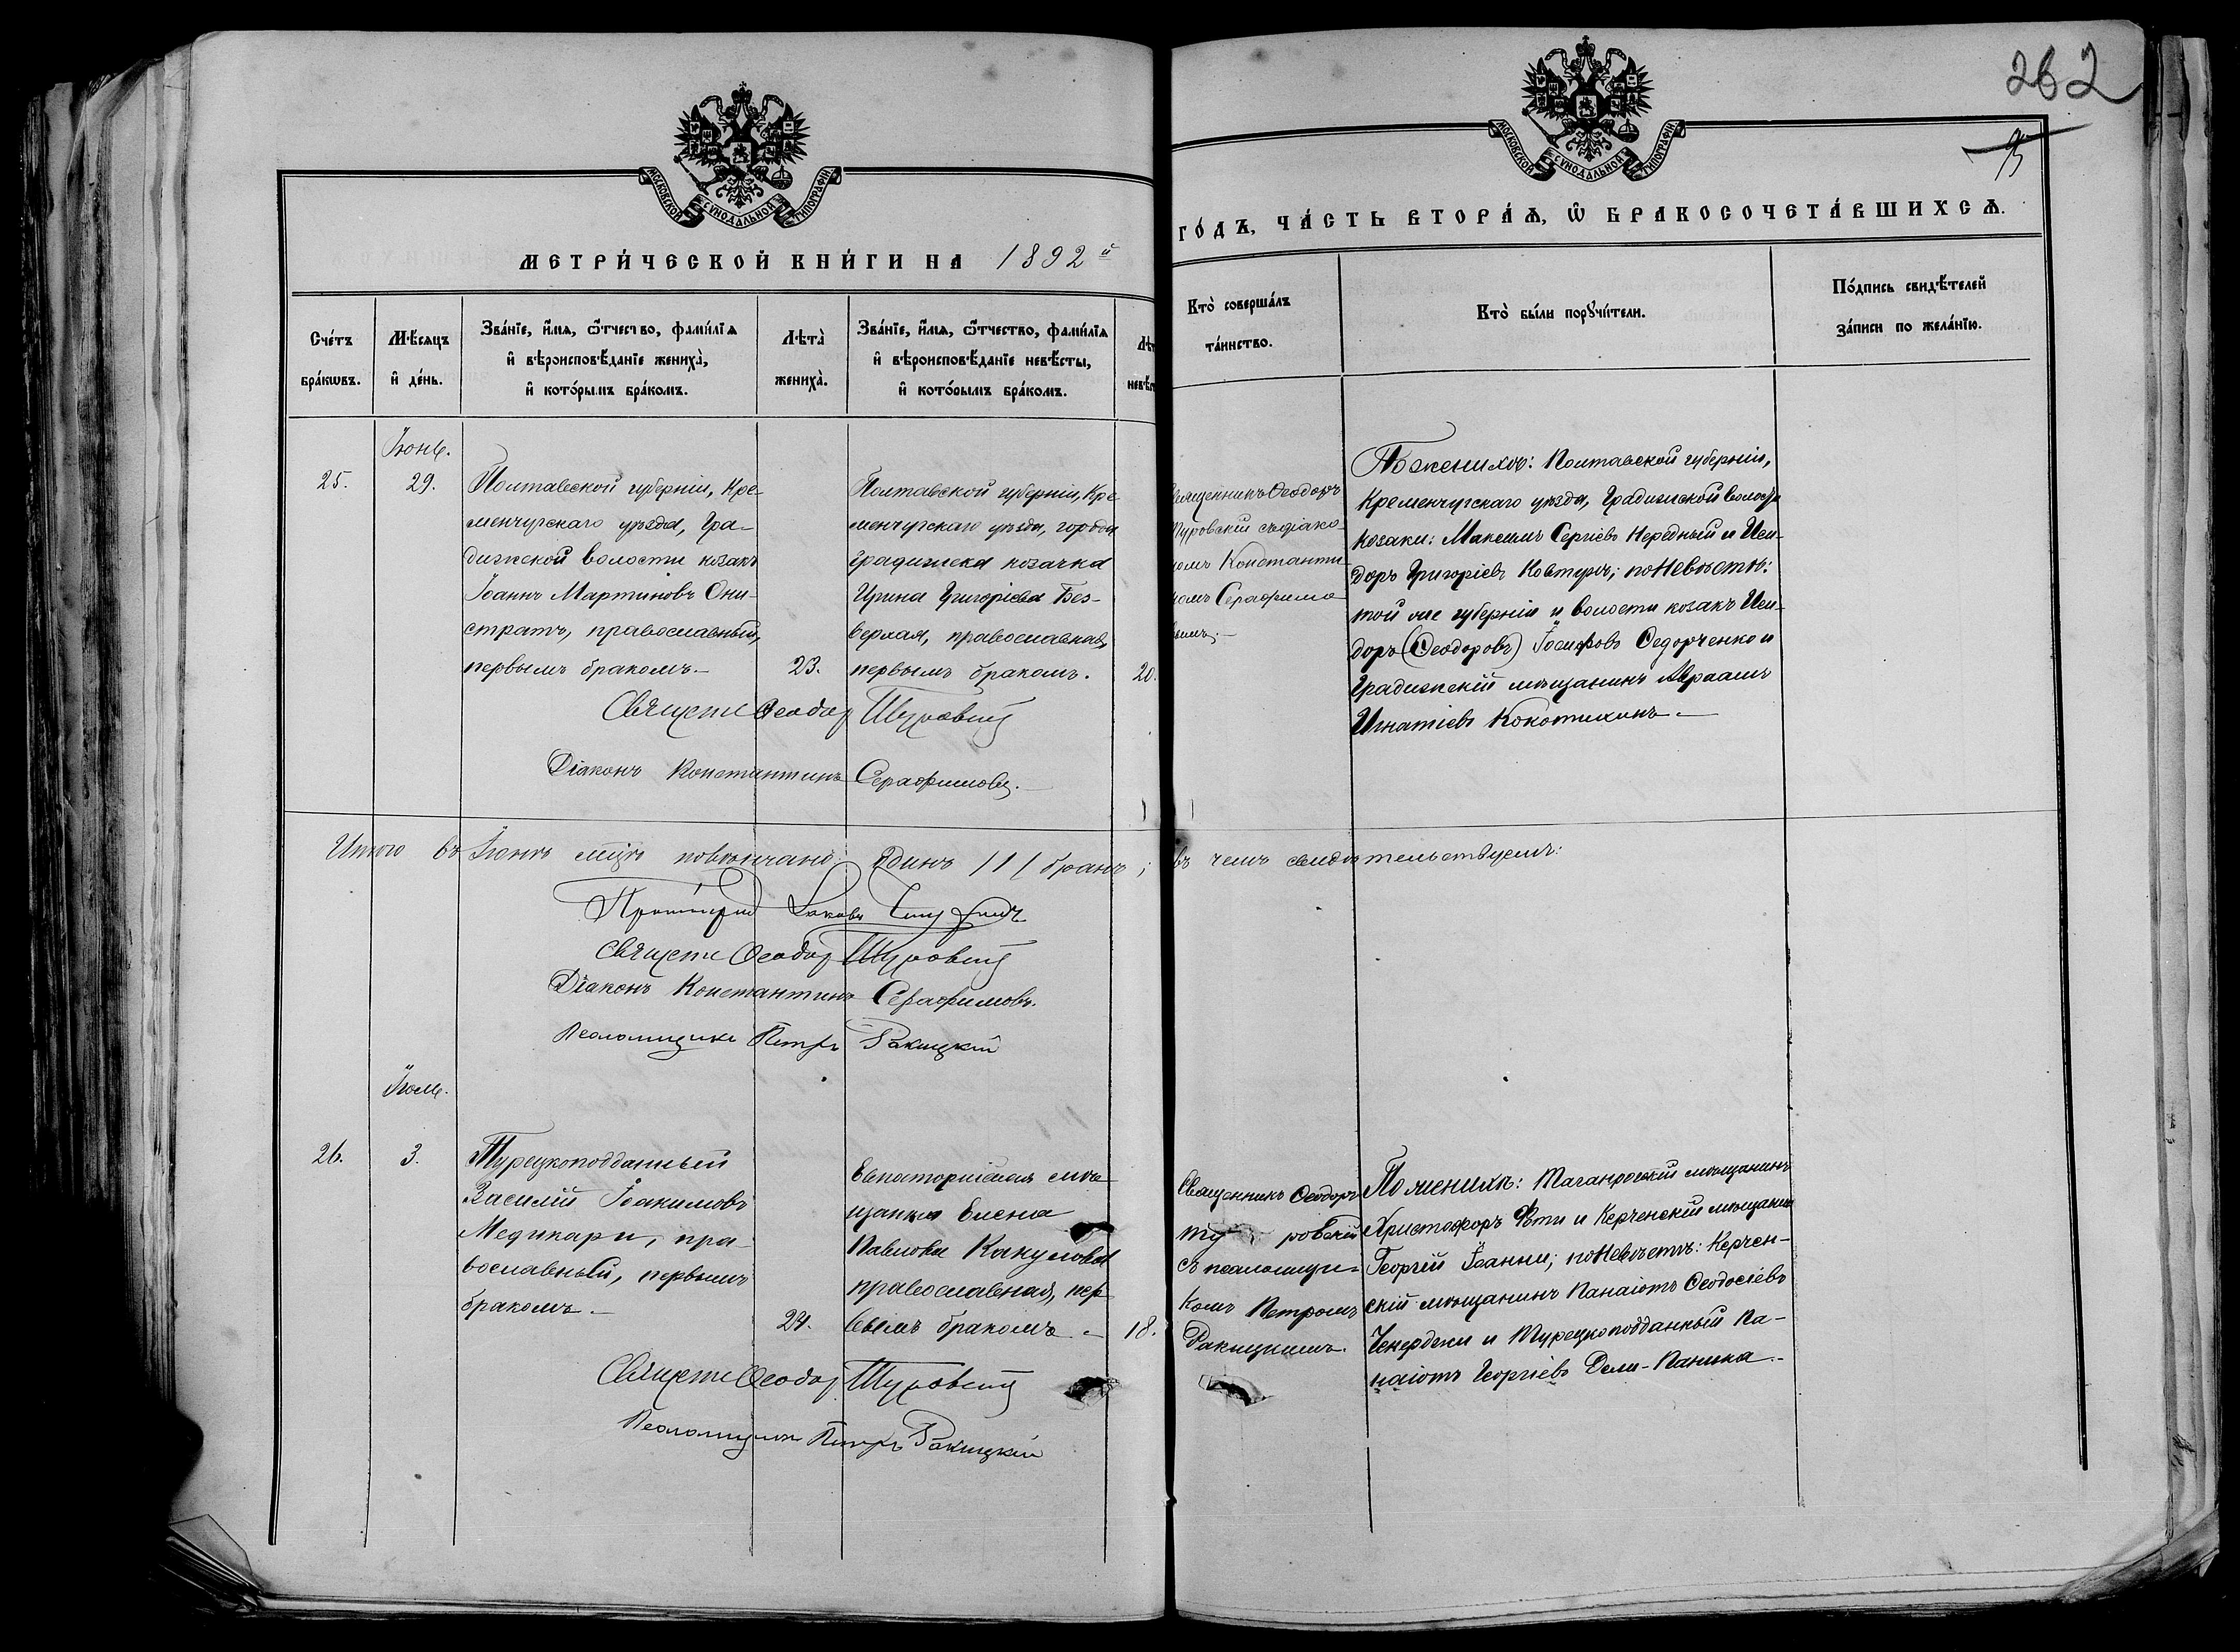 262
МОСКОВСКОЙ СѴНОДАЛЬНОЙ ТИПОГРАФІИ
МОСКОВСКОЙ СѴНОДАЛЬНОЙ ТИПОГРАФІИ
МЕТРИ́ЧЕСКОЙ КНИ́ГИ НА 1892й
ГО́ДЪ, ЧА́СТЬ ВТОРА́Ѧ, Ѽ БРАКОСОЧЕТА́ВШИХСѦ.
Сче́тъ
бра́кѡвъ.
Мѣ́сѧцъ
и҆ де́нь.
Зва́нїе, и҆́мѧ, ѻ҆́тчество, фами́лїѧ
и҆ вѣроисповѣ́данїе жениха̀,
и҆ кото́рымъ бра́комъ.
Лѣта̀
жениха̀.
Зва́нїе, и҆́мѧ, ѻ҆́тчество, фами́лїѧ
и҆ вѣроисповѣ́данїе невѣ́сты,
и҆ кото́рымъ бра́комъ.
Кто̀ соверша́лъ
та́инство.
Кто̀ бы́ли порꙋчи́тели.
По́дпись свидѣ́телей
за́писи по жела́нїю.
Іюнь.
25.
29.
Полтавской губерніи, Кре-
менчугскаго уѣзда, Гра-
дижской волости козакъ
Іоаннъ Мартиновъ Они-
стратъ, православный,
первымъ бракомъ.-
23.
Полтавской губерніи, Кре-
менчугскаго уѣзда, города
Градижска козачка
Ирина Григоріева Без-
верхая, православная,
первымъ бракомъ.
20.
Священникъ Ѳеодоръ
Туровскій съ діако-
номъ Константи-
номъ Серафимо-
вымъ.-
По женихѣ: Полтавской губерніи,
Кременчугскаго уѣзда, Градижской волости
козаки: Максимъ Сергіевъ Нередный и Иси-
доръ Григоріевъ Ковтунъ; по невѣстѣ:
той же губерніи и волости козакъ Иси-
доръ (Ѳеодоръ) Іосифовъ Ѳедорченко и
Градижскій мѣщанинъ Авраамъ
Игнатіевъ Кокотихинъ.-
Священ Ѳеодор Туровскій
Діаконъ Константинъ Серафимовъ.
Итого въ Іюнѣ мцѣ повѣнчано одинъ /1/ бракъ; въ чемъ свидѣтельствуемъ:
Протоіерей Іаковъ
Священ Ѳеодор Туровскій
Діаконъ Константинъ Серафимовъ.
Псаломщикъ Петръ Ракицкій
Іюль.
26.
3.
Турецкоподданный
Василій Іоакимовъ
Медикари, пра-
вославный, первымъ
бракомъ.-
24.
Евпаторійская мѣ-
щанка Елена
Павлова Какулова
православная, пер-
вымъ бракомъ.-
18.
Священникъ Ѳеодоръ
Ту ровскій
съ псаломщи-
комъ Петромъ
Ракицкимъ.
По женихѣ: Таганрогскій мѣщанинъ
Христофоръ Фоти и Керченскій мѣщанинъ
Георгій Іоанни; по невѣстѣ: Керчен-
скій мѣщанинъ Панаіотъ Ѳеодосіевъ
Чекерджи и Турецкоподданный Па-
наіотъ Георгіевъ Дели-Паника.-
Священ Ѳеодор Туровскій
Псаломщикъ Петръ Ракицкій